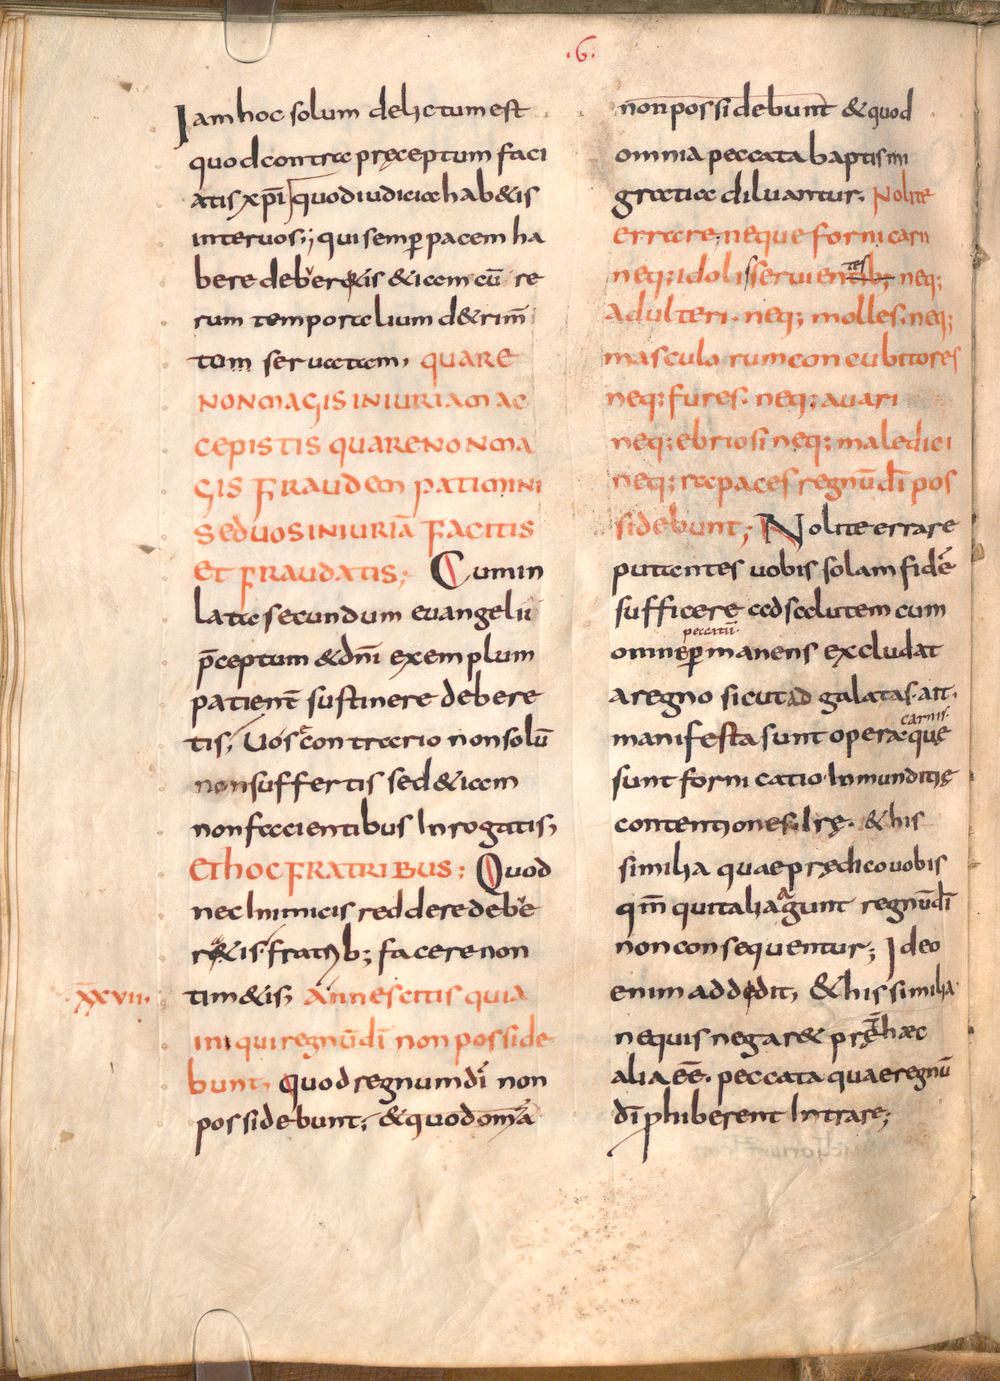 .6.
Iam hoc solum delictum est
quod contra pręceptum faci
atis xp̄i quod iudicia hab&is
inter uos; qui semꝑ pacem ha
bere deber&is &iam cū re
rum temporalium d&rim̄
tum seruatam, QUARE
NON MAGIS INIURIAM AC
CEPISTIS QUARE NON MA
GIS FRAUDEM PATIMINI
SED UOS INIURIĀ FACITIS
ET FRAUDATIS; Cum in
lata secundum euangelii
p̄ceptum & dn̄i exemplum
patient̄ sustinere debere
tis, Uos e contrario non solū
non suffertis sed &iam
non facientibus Inrogatis,
ET HOC FRATRIBUS; Quod
nec Inimicis reddere debe
r&is fratrib; facere non
.xxvii. tim&is, Annescitis quia
iniqui regnū dī non posside
bunt, quod regnum dī non
possidebunt, & quod om̄a
non possidebunt & quod
omnia peccata baptismi
gratia diluantur. Nolite
errare, neque fornicarii
neq; idolis seruientes neq;
Adulteri. neq; molles. neq;
masculorum concubitores
neq; fures. neq; auari
neq; ebriosi neq; maledici
neq; rapaces regnū dī pos
sidebunt; Nolite errare
putantes uobis solam fidē
sufficere ad salutem cum
omne peccatū ꝑmanens excludat
a regno sicut ad galatas. ait.
manifesta sunt opera carnis. quę
sunt fornicatio Inmunditię
contentiones. Irę. & his
similia quae prędico uobis
qm̄ qui talia agunt regnū dī
non consequentur; Ideo
enim addedit, & his similia
ne quis negar& pręt̄ hæc
alia eē. peccata quae regnū
dī ꝓhiberent Intrare;